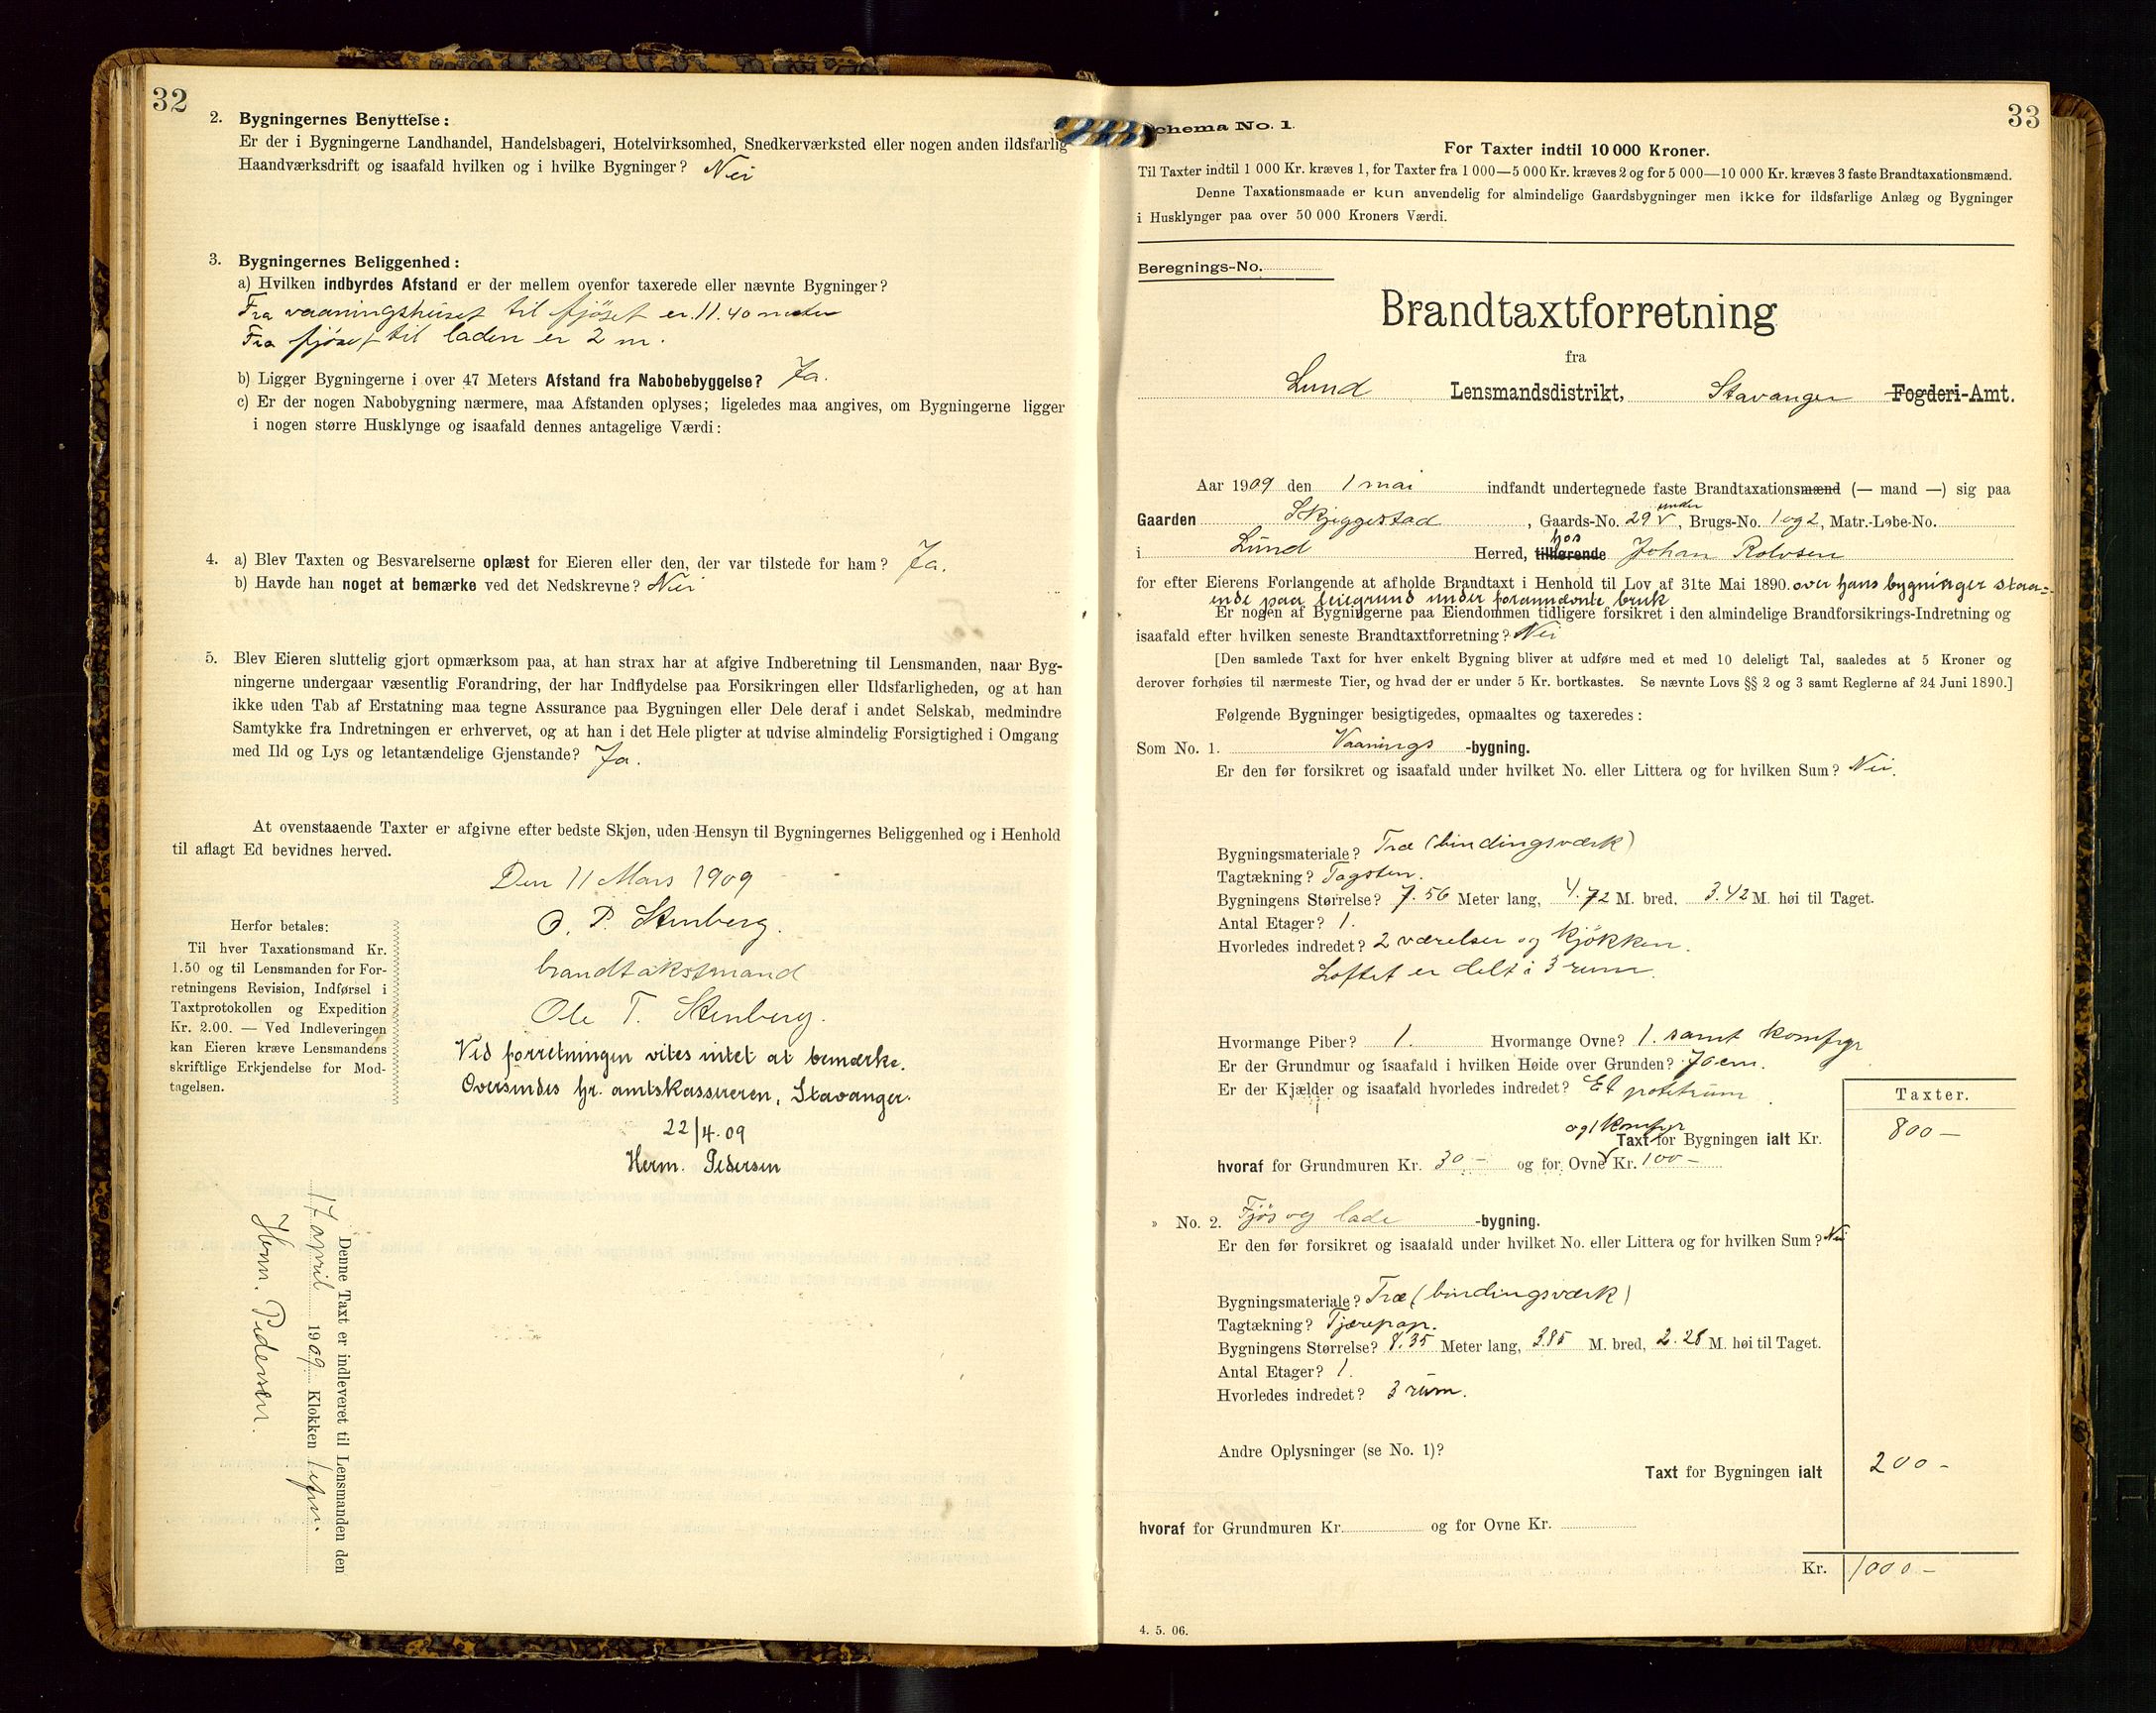 32
2. Bygningernes Benyttelse:
Er der i Bygningerne Landhandel, Handelsbageri, Hotelvirksomhed, Snedkerværksted eller nogen anden ildsfarlig
Haandværksdrift og isaafald hvilken og i hvilke Bygninger? Nei
3. Bygningernes Beliggenhed:
a) Hvilken indbyrdes Afstand er der mellem ovenfor taxerede eller nævnte Bygninger?
Fra vaaningshuset til fjøset er 11.40 meter
Fra fjøset til laden er 2 m.
b) Ligger Bygningerne i over 47 Meters Afstand fra Nabobebyggelse? Ja.
c) Er der nogen Nabobygning nærmere, maa Afstanden oplyses; ligeledes maa angives, om Bygningerne ligger
i nogen større Husklynge og isaafald dennes antagelige Værdi:
4. a) Blev Taxten og Besvarelserne oplæst for Eieren eller den, der var tilstede for ham? Ja.
b) Havde han noget at bemærke ved det Nedskrevne? Nei
5. Blev Eieren sluttelig gjort opmærksom paa, at han strax har at afgive Indberetning til Lensmanden, naar Byg-
ningerne undergaar væsentlig Forandring, der har Indflydelse paa Forsikringen eller Ildsfarligheden, og at han
ikke uden Tab af Erstatning maa tegne Assurance paa Bygningen eller Dele deraf i andet Selskab, medmindre
Samtykke fra Indretningen er erhvervet, og at han i det Hele pligter at udvise almindelig Forsigtighed i Omgang
med Ild og Lys og letantændelige Gjenstande? Ja.
At ovenstaaende Taxter er afgivne efter bedste Skjøn, uden Hensyn til Bygningernes Beliggenhed og i Henhold
til aflagt Ed bevidnes herved.
Den 11 Mars 1909
O. P. Stenberg.
brandtakstmand
Ole T. Stenberg.
Ved forretningen vites intet at bemærke.
Oversendes hr. amtskassereren, Stavanger.
22/4.09
Herm. Pedersen
Herfor betales:
Til hver Taxationsmand Kr.
1.50 og til Lensmanden for For-
retningens Revision, Indførsel i
Taxtprotokollen og Expedition
Kr. 2.00. — Ved Indleveringen
kan Eieren kræve Lensmandens
skriftlige Erkjendelse for Mod-
tagelsen.
Denne Taxt er indleveret til Lensmanden den
17 april 1909 Klokken 1 efm.
Herm. Pedersen.
33
Schema No. 1.
For Taxter indtil 10 000 Kroner.
Til Taxter indtil 1 000 Kr. kræves 1, for Taxter fra 1 000—5 000 Kr. kræves 2 og for 5 000—10 000 Kr. kræves 3 faste Brandtaxationsmænd.
Denne Taxationsmaade er kun anvendelig for almindelige Gaardsbygninger men ikke for ildsfarlige Anlæg og Bygninger
i Husklynger paa over 50 000 Kroners Værdi.
Beregnings-No.
Brandtaxtforretning
fra
Lund Lensmandsdistrikt, Stavanger Fogderi-Amt.
Aar 1909 den 1 mai indfandt undertegnede faste Brandtaxationsmænd (— mand —) sig paa
under
Gaarden Skjeggestad, Gaards-No. 29, Brugs-No. 1 og 2, Matr.-Løbe-No.
hos
i Lund Herred, tilhørende Johan Rolvsen
for efter Eierens Forlangende at afholde Brandtaxt i Henhold til Lov af 31te Mai 1890. over hans bygninger staa-
ende paa leiegrund under forannævnte bruk
Er nogen af Bygningerne paa Eiendommen tidligere forsikret i den almindelige Brandforsikrings-Indretning og
isaafald efter hvilken seneste Brandtaxtforretning? Nei
[Den samlede Taxt for hver enkelt Bygning bliver at udføre med et med 10 deleligt Tal, saaledes at 5 Kroner og
derover forhøies til nærmeste Tier, og hvad der er under 5 Kr. bortkastes. Se nævnte Lovs §§ 2 og 3 samt Reglerne af 24 Juni 1890.]
Følgende Bygninger besigtigedes, opmaaltes og taxeredes:
Som No. 1. Vaanings -bygning.
Er den før forsikret og isaafald under hvilket No. eller Littera og for hvilken Sum? Nei.
Bygningsmateriale? Træ (bindingsværk)
Tagtækning? Tagsten.
Bygningens Størrelse? 7.56 Meter lang, 4.72 M. bred, 3.42 M. høi til Taget.
Antal Etager? 1.
Hvorledes indredet? 2 værelser og kjøkken.
Loftet er delt i 3 rum.
Hvormange Piber? 1. Hvormange Ovne? 1. samt komfyr
Er der Grundmur og isaafald i hvilken Høide over Grunden? 70 cm.
Er der Kjælder og isaafald hvorledes indredet? Et potetrum.
Taxter.
og 1 komfyr
Taxt for Bygningen ialt Kr. 800 —
hvoraf for Grundmuren Kr. 30 — og for Ovne Kr. 100 —
» No. 2. Fjøs og lade -bygning.
Er den før forsikret og isaafald under hvilket No. eller Littera og for hvilken Sum? Nei
Bygningsmateriale? Træ (bindingsværk)
Tagtækning? Tjærepap.
Bygningens Størrelse? 8.35 Meter lang, 3.85 M. bred, 2.28 M. høi til Taget.
Antal Etager? 1.
Hvorledes indredet? 3 rum.
Andre Oplysninger (se No. 1)?
Taxt for Bygningen ialt 200 -
hvoraf for Grundmuren Kr. og for Ovne Kr.
Kr. 1000 —
4. 5. 06.